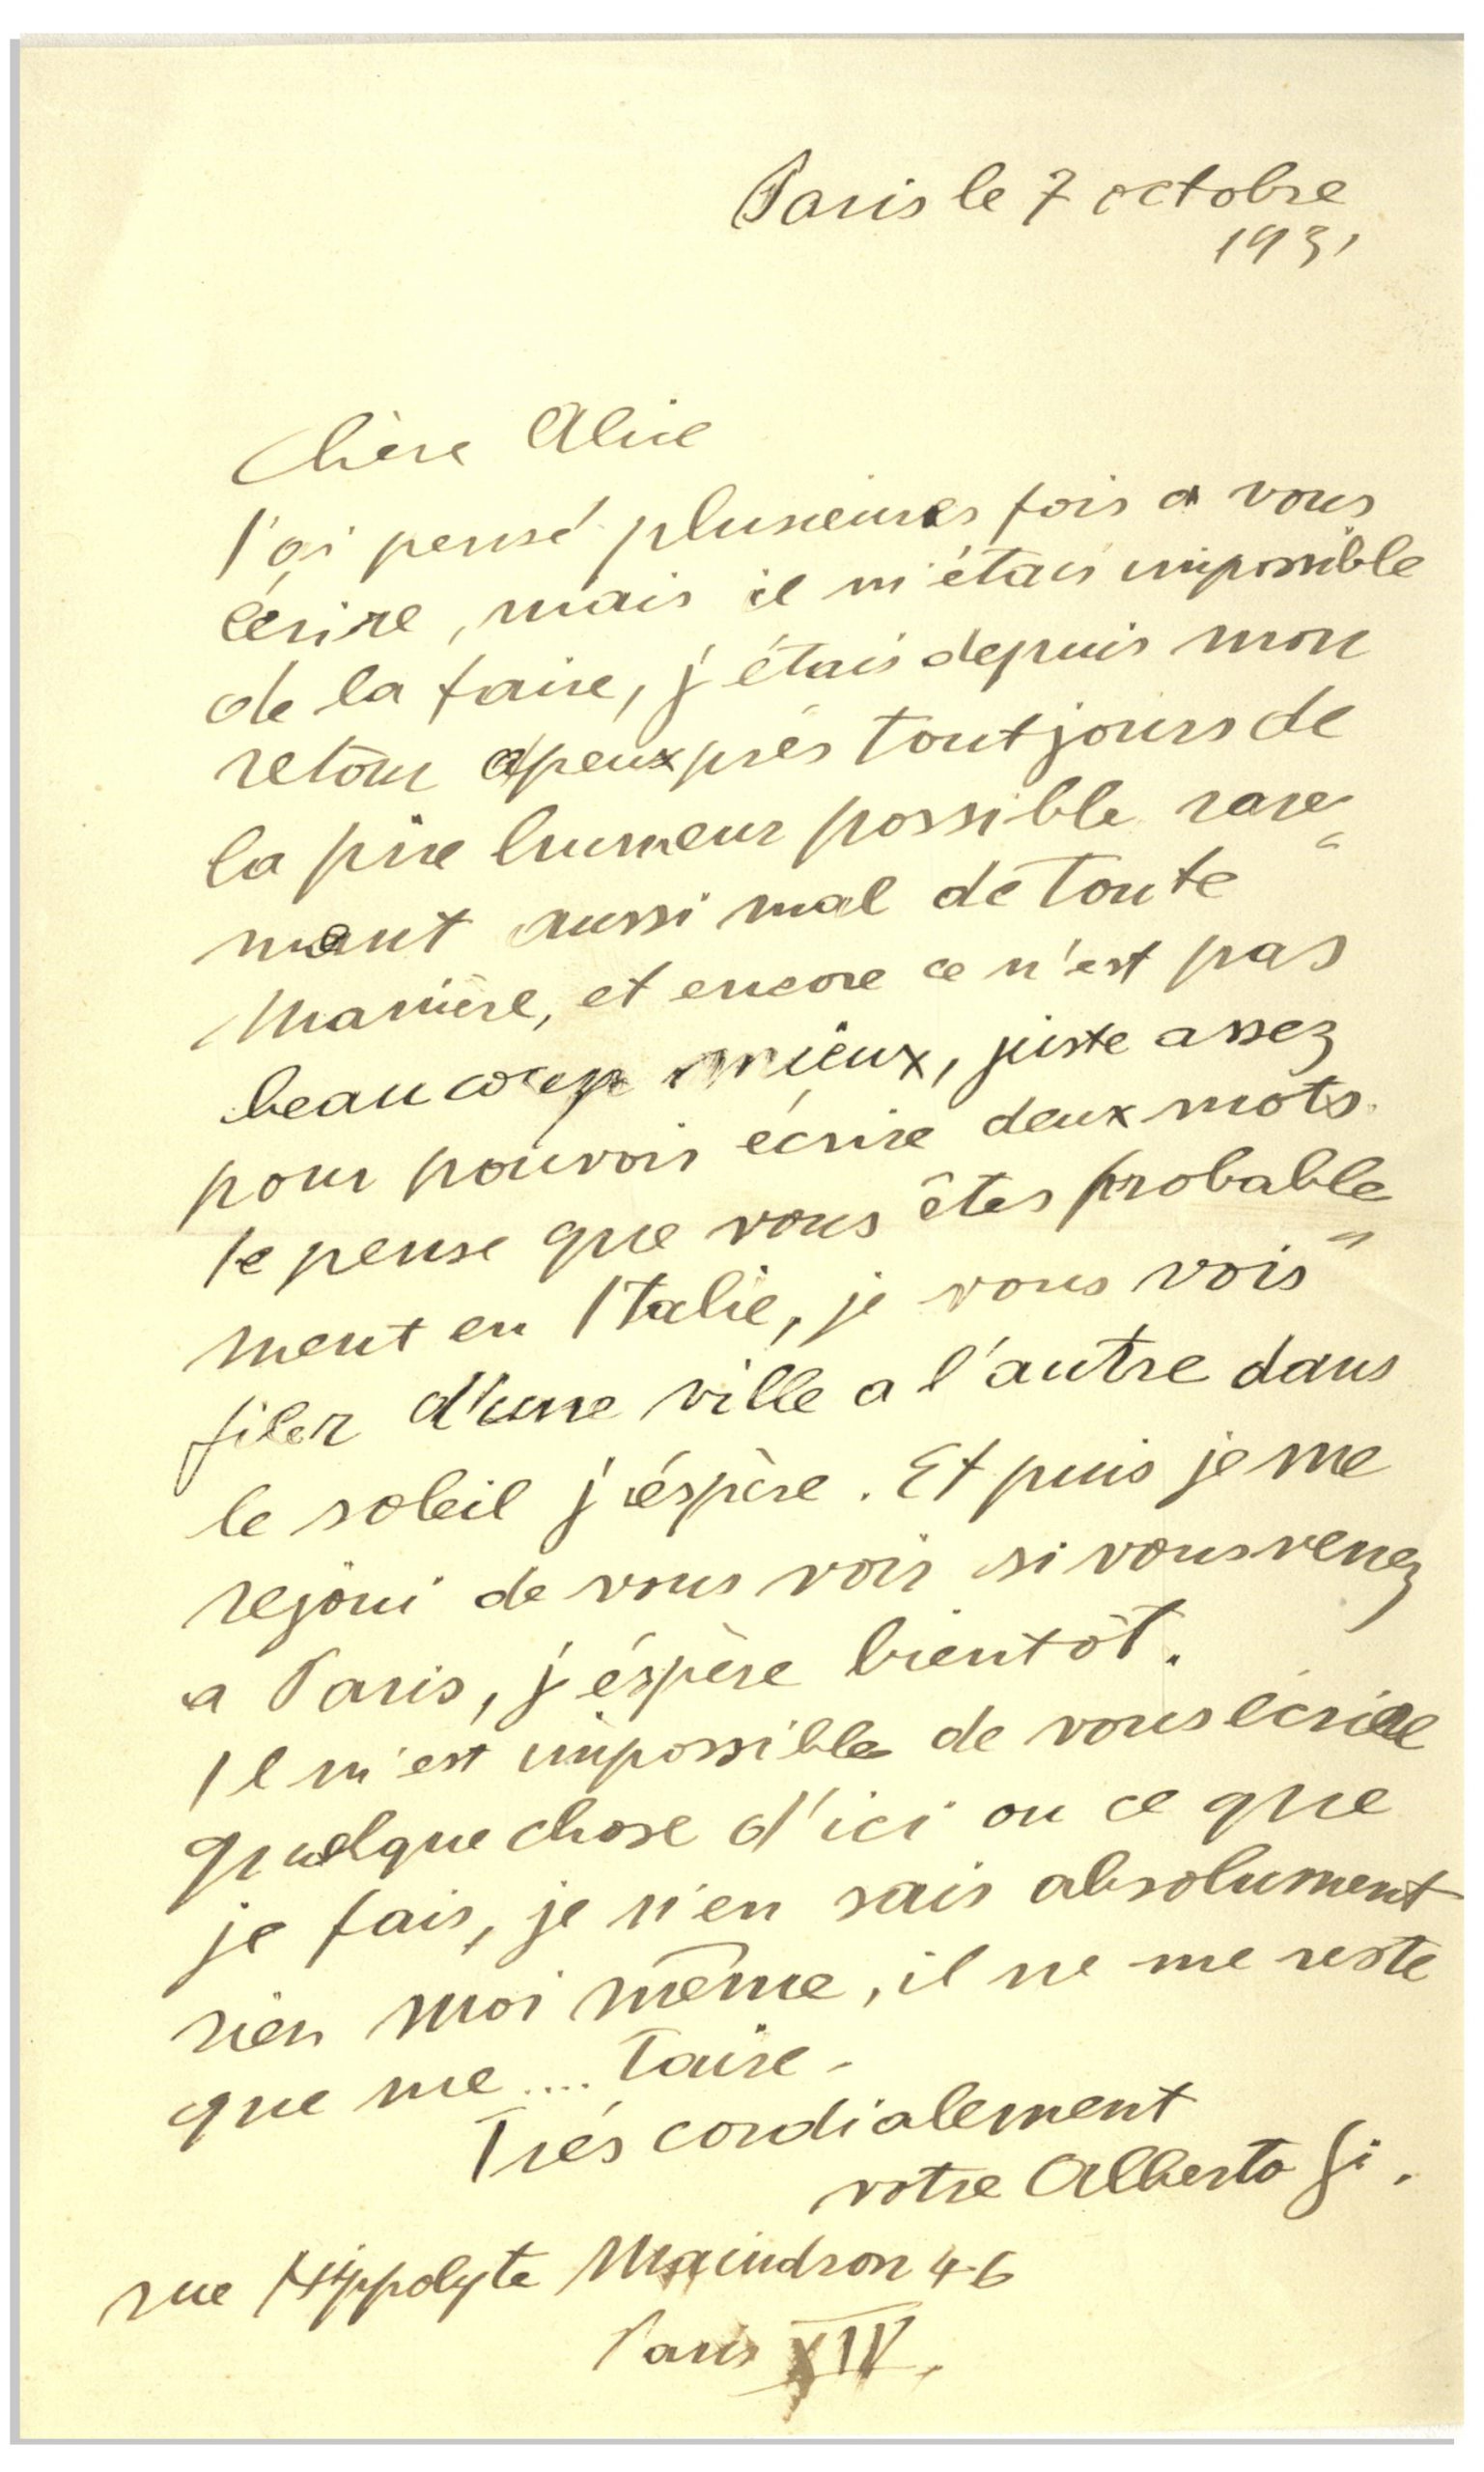 Paris le 7 octobre
1931
Chère Alice
J'ai pensé plusieures fois a vous
écrire, mais il m'étais impossible
de la faire, j'étais depuis mon
retour apeux près toutjours de
la pire humeur possible rare=
ment aussi mal de toute
manière, et encore ce n'est pas
beaucoup mieux, juste assez
pour pouvoir écrire deux mots.
Je pense que vous êtes probable=
ment en Italie, je vous vois
filer d'une ville a l'autre dans
le soleil j'éspère. Et puis je me
rejoui de vous voir si vous venez
a Paris, j'éspère bientôt.
Il m'est impossible de vous écrire
quelque chose d'ici ou ce que
je fais, je n'en sais absolument
rien moi même, il ne me reste
que me .... taire.
Trés cordialement
votre Alberto Gi.
rue Hippolyte Maindron 46
Paris XIV.